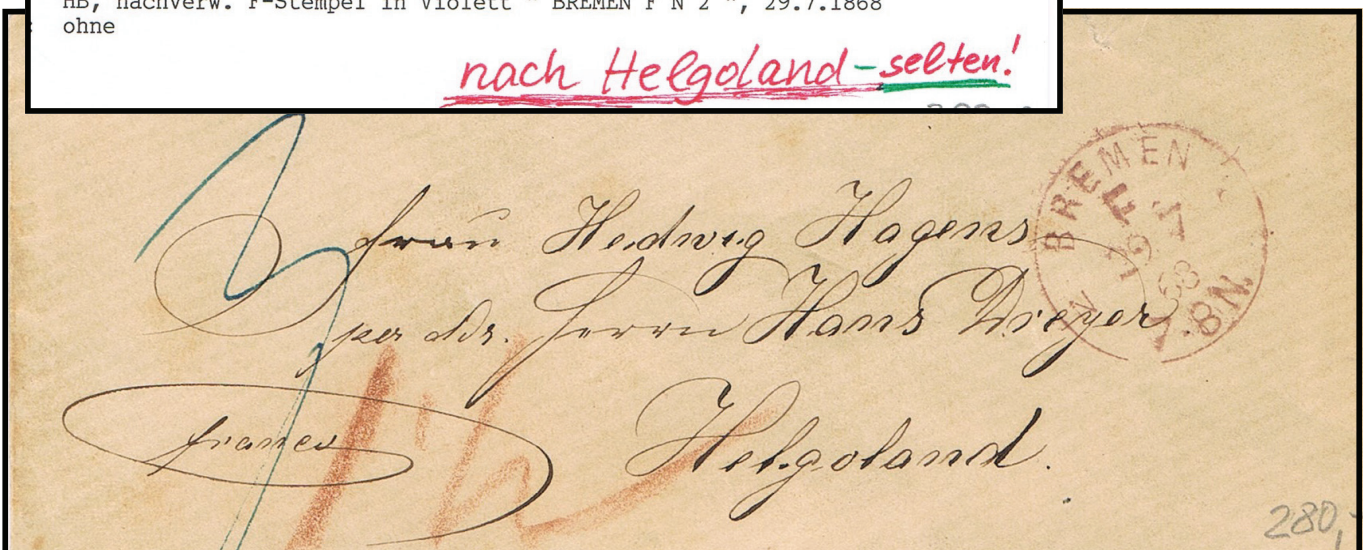 HB, nachverw. F-Stempel in Violett " BREMEN F N 2 ", 29.7.1868
ohne
nach Helgoland - selten!
BREMEN
F
29
7
68
7-8N.
N 2
Frau Hedwig Hagens
per adr. Herrn Hans Dreyer
franco
Helgoland.
280,-